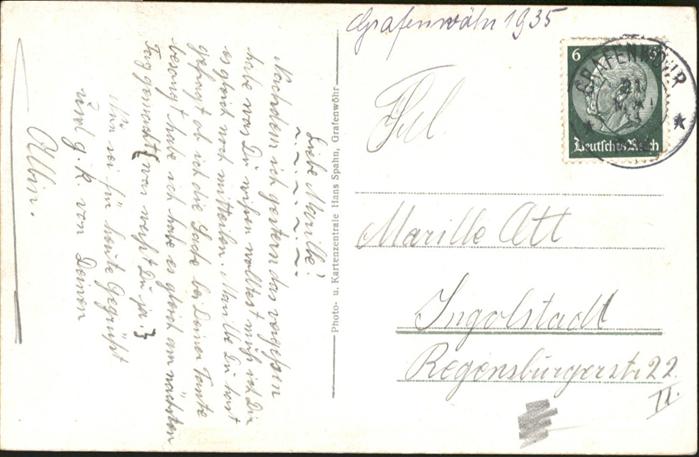 Grafenwöhr 1935
6
GRAFENWÖHR
Deutsches Reich
Frl.
Marille Ott
Ingolstadt
Regensburgerstr 22
II.
Photo- u. Kartenzentrale Hans Spahn, Grafenwöhr
Liebe Marille!
Nachdem ich gestern das vergessen
habe was Du wissen wolltest muß ich Dir
es gleich noch mitteilen. Marille Du hast
gefragt ob ich die Sache bei Deiner Tante
besorgt habe ich habe es gleich am nächsten
Tag gemacht (was weißt Du ja.)
Nun sei für heute Gegrüßt
und g. k. von Deinen
Albin.